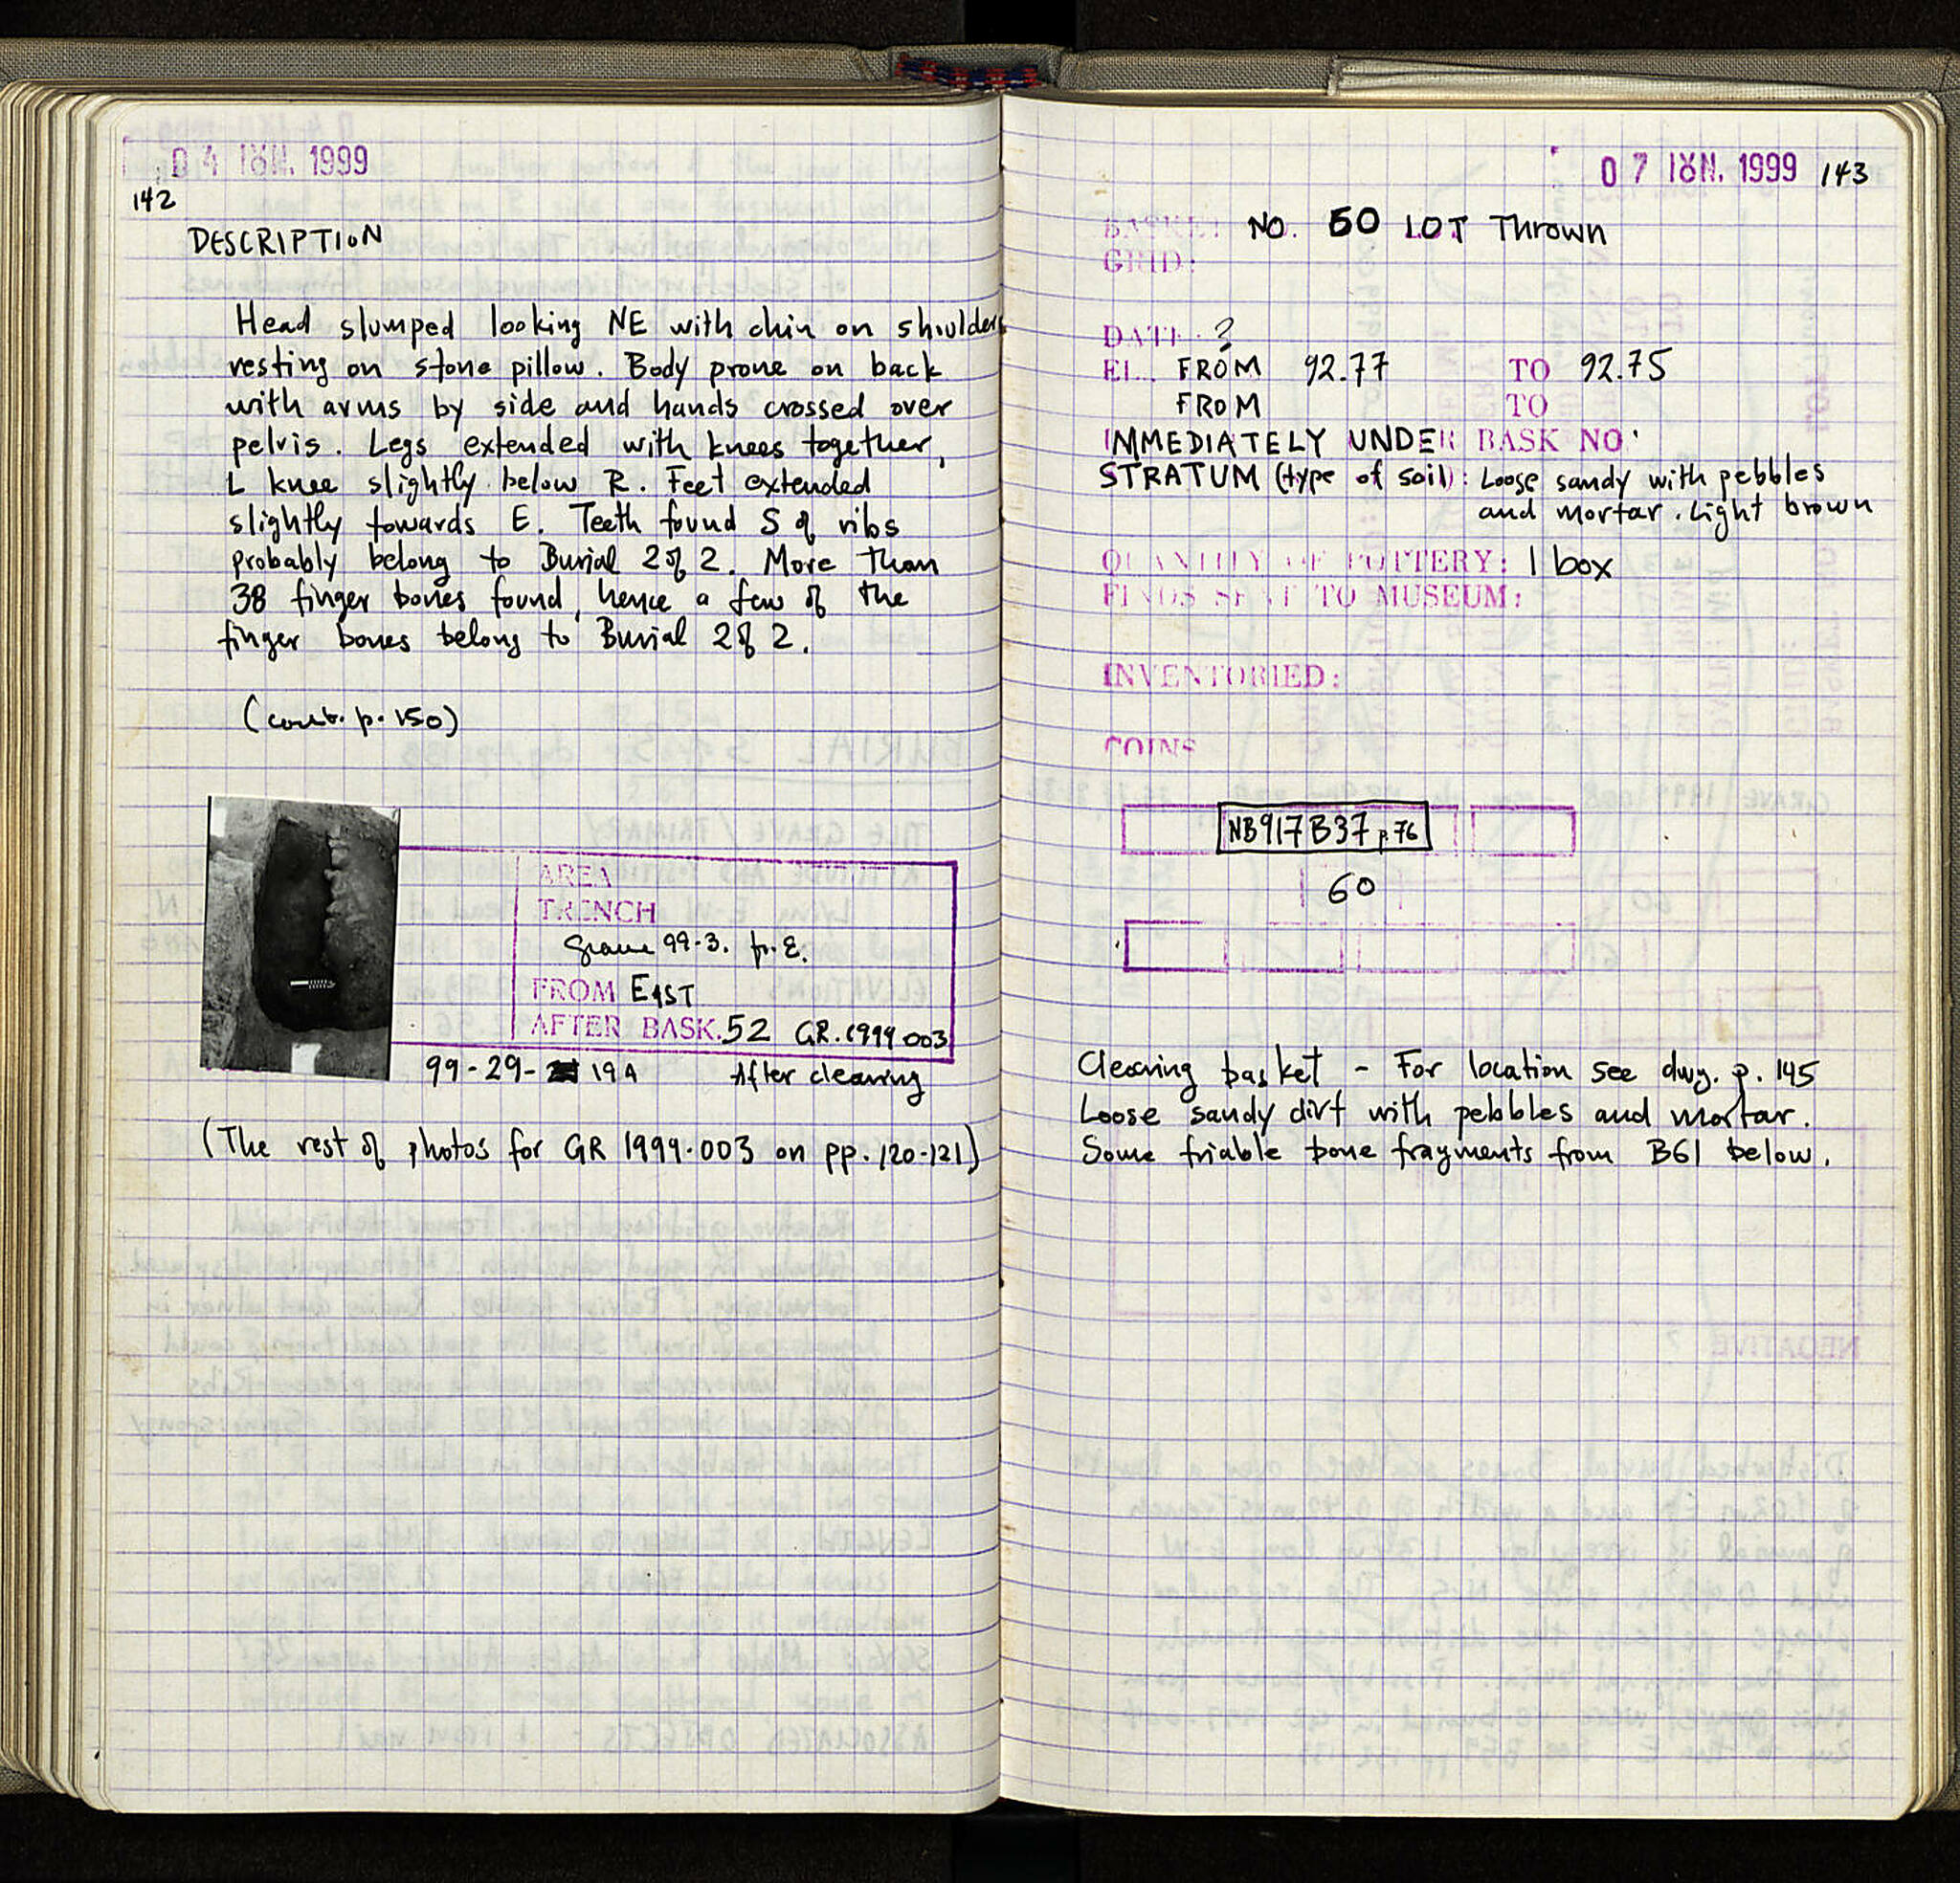 04 ΙΟΥΝ. 1999
142
DESCRIPTION
Head slumped looking NE with chin on shoulder
resting on stone pillow. Body prone on back
with arms by side and hands crossed over
pelvis. Legs extended with knees together,
L knee slightly below R. Feet extended
slightly towards E. Teeth found S of ribs
probably belong to Burial 2 of 2. More than
38 finger bones found, hence a few of the
finger bones belong to Burial 2 of 2.
(cont. p. 150)
AREA
TRENCH
Grave 99-3. fr. E.
FROM EAST
AFTER BASK. 52 GR. 1999 003
99-29- 19A After cleaning
(The rest of photos for GR 1999.003 on pp. 120-121)
07 ΙΟΥΝ. 1999 143
BASKET NO. 60 LOT Thrown
GRID:
DATE ?
EL. FROM 92.77 TO 92.75
FROM TO
IMMEDIATELY UNDER BASK NO.
STRATUM (type of soil): Loose sandy with pebbles
and mortar. Light brown
QUANTITY OF POTTERY: 1 box
FINDS SENT TO MUSEUM:
INVENTORIED:
COINS
NB917 B37 p.76
60
Cleaning basket - For location see dwg. p. 145
Loose sandy dirt with pebbles and mortar.
Some friable bone fragments from B61 below.